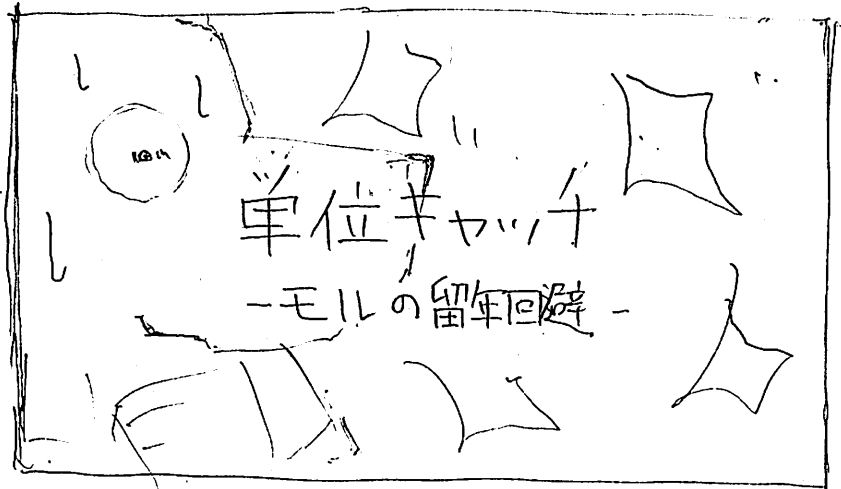 単位キャッチ
-モルの留年回避-